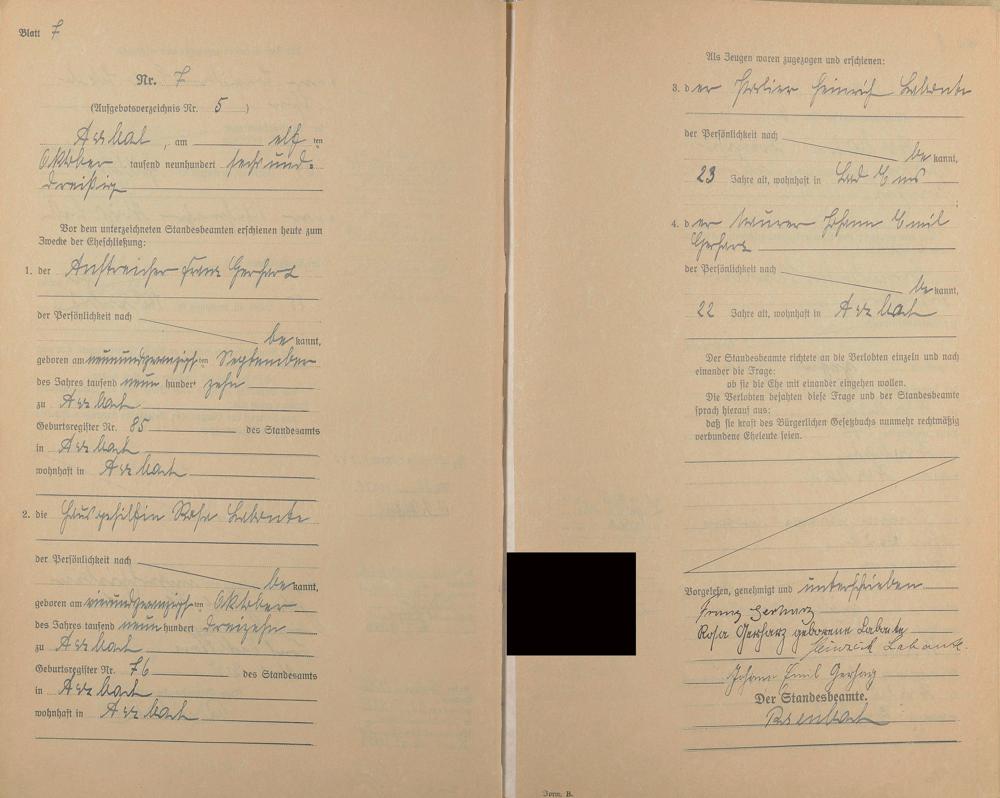 Blatt 7
Nr. 7
(Aufgebotsverzeichnis Nr. 5)
Arzbach, am elf ten
Oktober tausend neunhundert sechsund-
dreißig
Vor dem unterzeichneten Standesbeamten erschienen heute zum
Zwecke der Eheschließung:
1. der Anstreicher Franz Gerharz
der Persönlichkeit nach
be kannt,
geboren am neunundzwanzigsten September
des Jahres tausend neun hundert zehn
zu Arzbach
Geburtsregister Nr. 85 des Standesamts
in Arzbach
wohnhaft in Arzbach
2. die Hausgehilfin Rosa Labonte
der Persönlichkeit nach
be kannt,
geboren am vierundzwanzigsten Oktober
des Jahres tausend neun hundert dreizehn
zu Arzbach
Geburtsregister Nr. 76 des Standesamts
in Arzbach
wohnhaft in Arzbach
Als Zeugen waren zugezogen und erschienen:
3. der Heinrich Labonte
der Persönlichkeit nach
be kannt,
23 Jahre alt, wohnhaft in Bad Ems
4. der Maurer Johann Emil
Gerharz
der Persönlichkeit nach
be kannt,
22 Jahre alt, wohnhaft in Arzbach
Der Standesbeamte richtete an die Verlobten einzeln und nach
einander die Frage:
ob sie die Ehe mit einander eingehen wollen.
Die Verlobten bejahten diese Frage und der Standesbeamte
sprach hierauf aus:
daß sie kraft des Bürgerlichen Gesetzbuchs nunmehr rechtmäßig
verbundene Eheleute seien.
Vorgelesen, genehmigt und unterschrieben
Franz Gerharz
Rosa Gerharz geborene Labonte
Heinrich Labonte.
Johann Emil Gerharz
Der Standesbeamte.
Form. B.